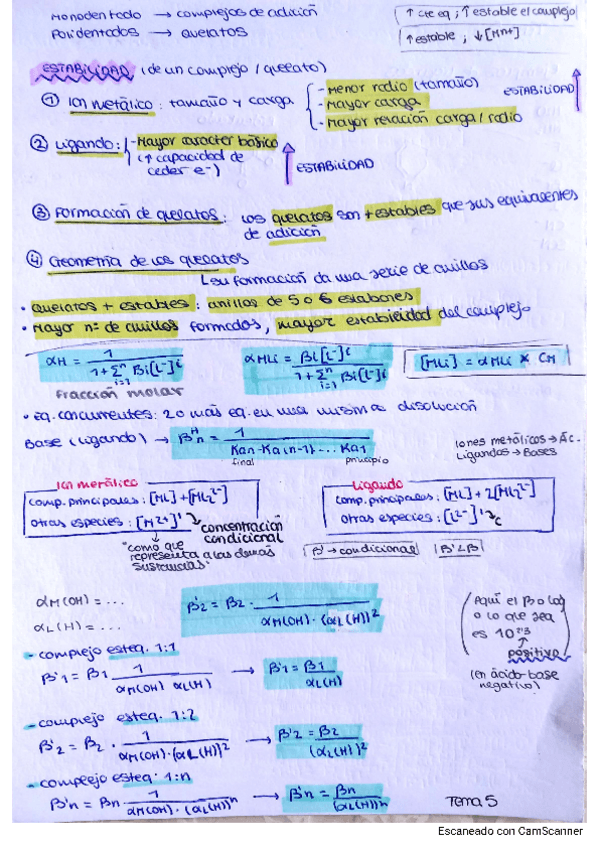 Monodentado → complejos de adición
Polidentados → quelatos
↑ cte eq ; ↑ estable el complejo
↑ estable ; ↓[Mn+]
ESTABILIDAD (de un complejo / quelato)
① Ion metálico : tamaño y carga.
- Menor radio (tamaño)
- Mayor carga
- Mayor relación carga / radio
ESTABILIDAD
② Ligando: - Mayor caracter básico
(↑ capacidad de
ceder e-)
ESTABILIDAD
③ Formación de quelatos : los quelatos son + estables que sus equivalentes
de adición
④ Geometría de los quelatos
su formación da una serie de anillos
• quelatos + estables : anillos de 5 o 6 eslabones
• Mayor nº de anillos formados, mayor estabilidad del complejo
αM = 1 / (1 + Σⁿᵢ₌₁ Bi[L⁻]ⁱ)
αMLi = Bi[L⁻]ⁱ / (1 + Σⁿᵢ₌₁ Bi[L⁻]ⁱ)
[MLi] = αMLi × CM
Fracción molar
• Eq. concurrentes: 2 o más eq. en una misma disolución
Base (ligando) → βᴴn = 1 / (Kan · Ka(n-1) ... Ka1)
final principio
Iones metálicos → Ác.
Ligandos → Bases
Ion metálico
comp. principales : [ML] + [ML₂²⁻]
otras especies : [M2+]'
concentración
condicional
"como que
representa a las demás
sustancias"
Ligando
comp. principales : [ML] + 2[ML₂²⁻]
otras especies : [L²⁻]'
β' → condicional
β' < β
αM(OH) = ...
αL(H) = ...
β'2 = β2 · 1 / (αM(OH) · (αL(H))²)
(Aquí el β o log
o lo que sea
es 10^%
positivo
(en ácido-base
negativo)
- complejo esteq. 1:1
β'1 = β1 1 / (αM(OH) αL(H)) → β'1 = β1 / αL(H)
- complejo esteq. 1:2
β'2 = β2 · 1 / (αM(OH) · (αL(H))²) → β'2 = β2 / (αL(H))²
- complejo esteq. 1:n
β'n = βn · 1 / (αM(OH) · (αL(H))ⁿ) → β'n = βn / (αL(H))ⁿ
Tema 5
Escaneado con CamScanner